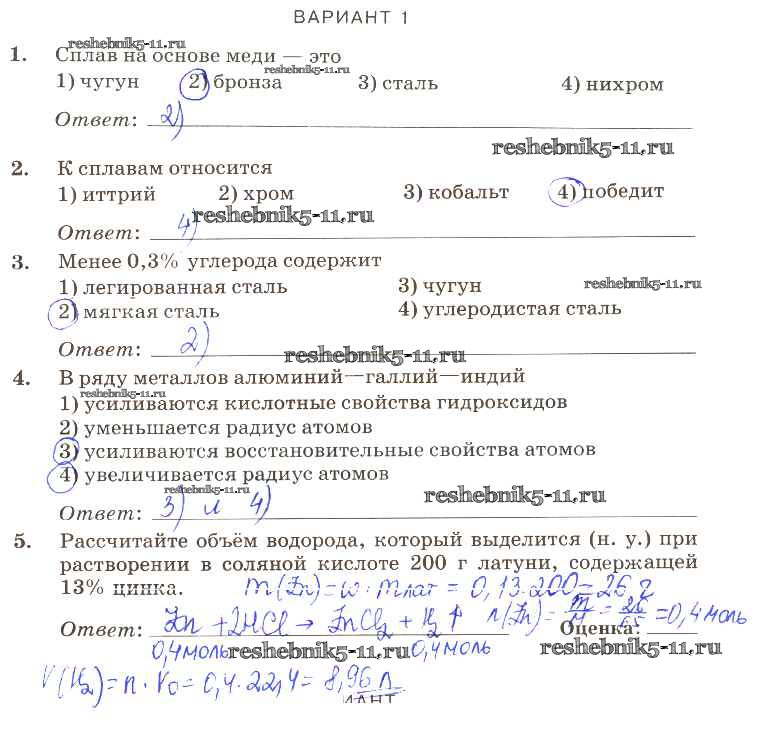 ВАРИАНТ 1
reshebnik5-11.ru
1. Сплав на основе меди — это
reshebnik5-11.ru
1) чугун 2) бронза 3) сталь 4) нихром
Ответ: 2)
reshebnik5-11.ru
2. К сплавам относится
1) иттрий 2) хром 3) кобальт 4) победит
reshebnik5-11.ru
Ответ: 4)
3. Менее 0,3% углерода содержит
1) легированная сталь 3) чугун reshebnik5-11.ru
2) мягкая сталь 4) углеродистая сталь
Ответ: 2)
reshebnik5-11.ru
4. В ряду металлов алюминий—галлий—индий
reshebnik5-11.ru
1) усиливаются кислотные свойства гидроксидов
2) уменьшается радиус атомов
3) усиливаются восстановительные свойства атомов
4) увеличивается радиус атомов
reshebnik5-11.ru reshebnik5-11.ru
Ответ: 3) и 4)
5. Рассчитайте объём водорода, который выделится (н. у.) при
растворении в соляной кислоте 200 г латуни, содержащей
13% цинка. m(Zn)=ω·mлат = 0,13·200=26 г
Ответ: Zn + 2HCl → ZnCl2 + H2↑ n(Zn)=m/M=26/65=0,4 моль
Оценка:
0,4 моль reshebnik5-11.ru 0,4 моль reshebnik5-11.ru
V(H2)=n·V0=0,4·22,4=8,96 л